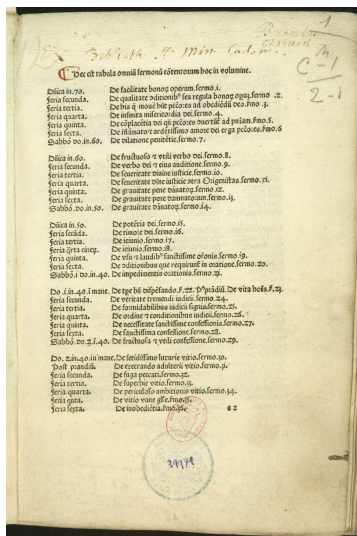 Ex Biblioth. Ff. Min. Caden.
1
C-1
2-1
Hec est tabula omniũ sermonũ cõtentorum hoc in volumine.
Dñica in.70. De facilitate bonoꝝ operum.sermo.1.
feria secunda. De qualitate ꝯditionibꝰ seu regula bonoꝝ opeꝝ.sermo.2.
feria tertia. De his q̃ mouẽt hũc pctores ad obediẽdũ deo.sermo.3.
feria quarta. De infinita misericordia dei.sermo.4.
feria quinta. De cõplacẽtia dei qñ pctores auertũt ad pniam.sermo.5.
feria sexta. De et ardẽtissimo amore dei erga pctores.sermo.6
Sabbõ do.in.60. De dilatione penitẽtie.sermo.7.
Dñica in.60. De fructuoso ⁊ vtili verbo dei.sermo.8.
feria secunda. De verbo dei ⁊ eius auditione.sermo.9.
feria tertia. De seueritate diuine iusticie.sermo.10.
feria quarta. De seueritate diuine iusticie ꝯtra Origenistas.sermo.11.
feria quinta. De grauitate pene dãnatoꝝ.sermo.12.
feria sexta. De grauitate pene dannatorum.sermo.13.
Sabbõ.do.in.50. De grauitate dãnatoꝝ.sermo.14.
Dñica in.50. De potẽtia dei.sermo.15.
feria secũda. De timore dei.sermo.16.
feria tertia. De ieiunio.sermo.17.
feria q̃rta cineꝝ. De ieiunio.sermo.18.
feria quinta. De vsu ⁊ laudibꝰ sanctissime oronis.sermo.19.
feria sexta. De ꝯditionibus que requirunt in oratione.sermo.20.
Sabbõ.i do.in.40. De impedimentis orationis.sermo.21.
Do.i.in.40.i mane. De tpe bñ dispẽsando.ẜ.22. Pꝰ prãdiũ. De vita hoĩs.ẜ.23
feria secunda. De veritate tremendi iudicii.sermo.24.
feria tertia. De formidabilibus iudicii signis.sermo.25.
feria quarta. De ordine ⁊ conditionibus iudicii.sermo.26.
feria quinta. De necessitate sanctissime confessionis.sermo.27.
feria sexta. De sanctissima confessione.sermo.28.
Sabbõ.do.2.i.40. De fructuosa ⁊ vtili confessione.sermo.29.
Do.2.in.40.in mane. De fetidissimo luxurie vitio.sermo.30.
Post prandiũ. De execrando adulterii vitio.sermo.31.
feria secunda. De fuga peccati.sermo.32.
feria tertia. De superbie vitio.sermo.33.
feria quarta. De periculoso ambitionis vitio.sermo.34.
feria qnta. De vitio vane glie.sermo.35.
feria sexta. De inobediẽtia.sermo.36.
a 2
39991